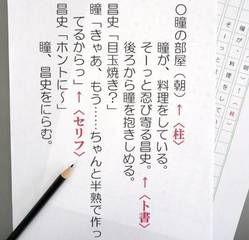 〇瞳の部屋(朝)↑〈柱〉
瞳が、料理をしている。
そーっと忍び寄る昌史。↑〈ト書〉
後ろから瞳を抱きしめる。
昌史「目玉焼き?」
瞳「きゃあ、もう……ちゃんと半熟で作っ
てるからっ」↑〈セリフ〉
昌史「ホントに~」
瞳、昌史をにらむ。